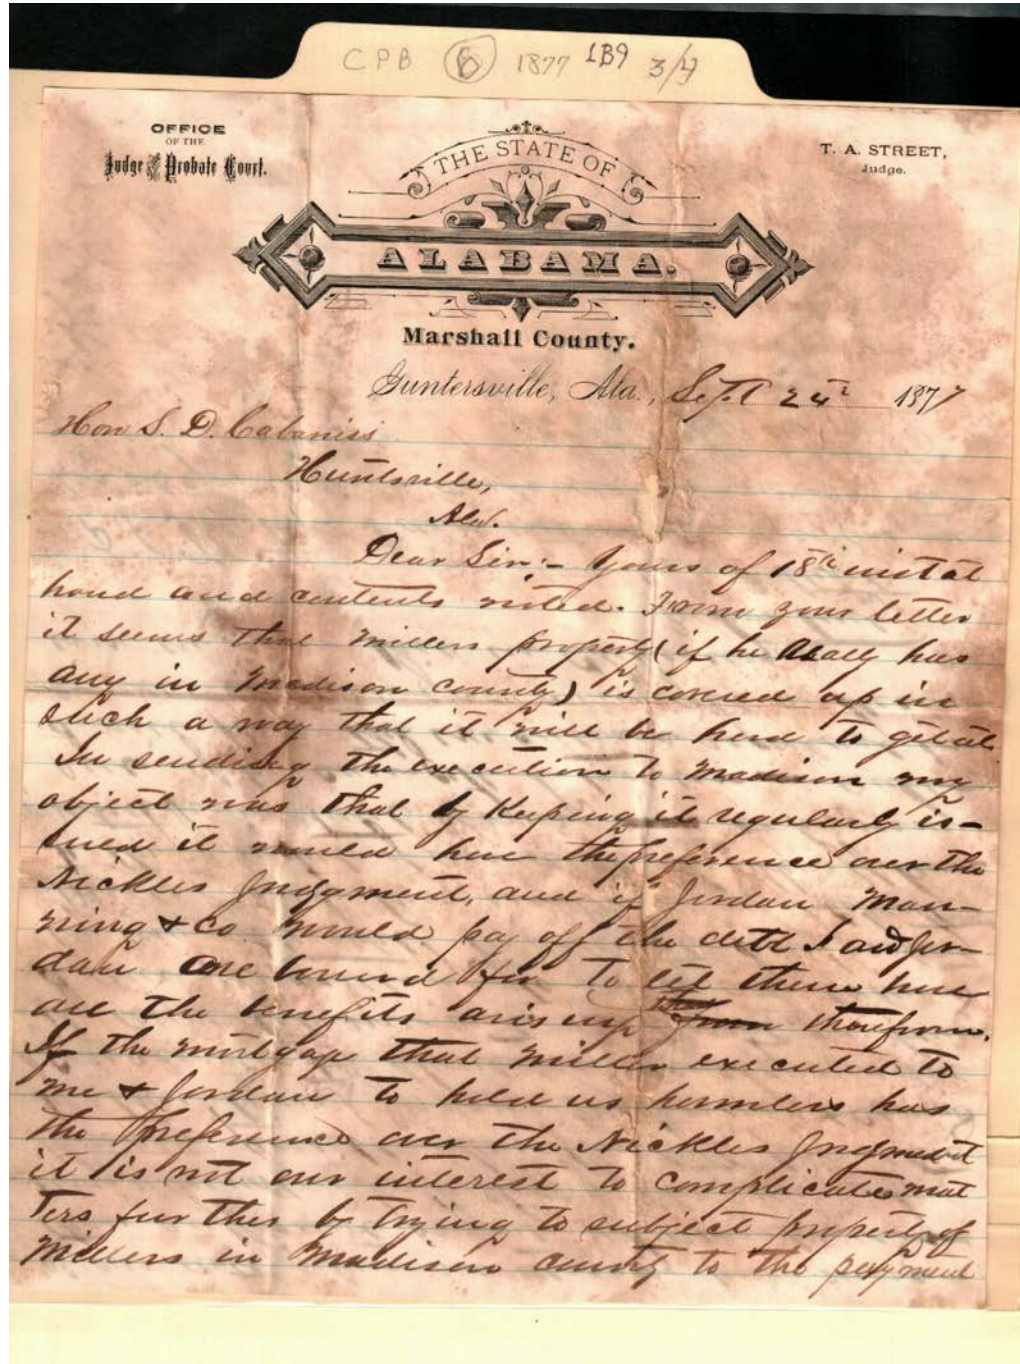 CPB 6 1877 1B9 3/4
OFFICE
OF THE
Judge of the Probate Court.
THE STATE OF
ALABAMA.
T. A. STREET,
Judge.
Marshall County.
Guntersville, Ala., Sept 24th 1877
Hon S. D. Cabaniss
Huntsville,
Ala.
Dear Sir:- Yours of 18th inst at
hand and contents noted. From your letter
it seems that Millers property (if he really has
any in Madison county) is covered up in
such a way that it will be hard to get at.
In sending the execution to Madison my
object was that by Keeping it regularly is-
sued it would have the preference over the
Nickles Judgment, and if Jordan Man-
ning & Co would pay off the debt I and Jor-
dan are bound for to let them have
all the benefits arising from therefrom.
If the mortgage that Miller executed to
me & Jordan to hold us harmless has
the preference over the Nickles Judgment
it is not our interest to complicate mat
ters further by trying to subject property of
Millers in Madison county to the payment